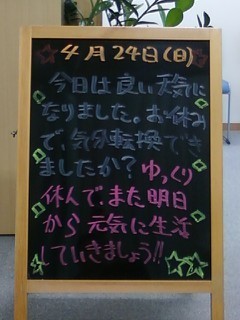 4月24日(日)
今日は良い天気に
なりました。お休み
で、気分転換でき
ましたか?ゆっくり
休んで、また明日
から元気に生活
していきましょう!!